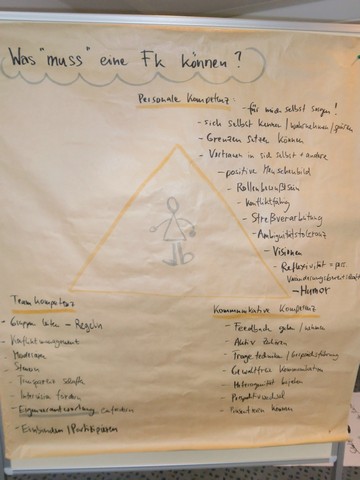 Was "muss" eine Fk können?
Personale Kompetenz:
- für mich selbst sorgen!
- sich selbst kennen / wahrnehmen / spüren
- Grenzen setzen können
- Vertrauen in sich selbst + andere
- positive Menschenbild
- Rollenbewußtsein
- Konfliktfähig
- Streßverarbeitung
- Ambiguitätstoleranz
- Visionen
- Reflexivität = pers.
Veränderungsbereitschaft
- Humor
Teamkompetenz
- Gruppen leiten - Regeln
- Konfliktmanagement
- Moderieren
- Steuern
- Transparenz schaffen
- Intervision fördern
- Eigenverantwortung einfordern
- Einbinden / Partizipieren
Kommunikative Kompetenz
- Feedback geben / nehmen
- Aktiv Zuhören
- Fragetechniken / Gesprächsführung
- Gewaltfreie Kommunikation
- Heterogenität
- Perspektivwechsel
- Präsentieren können